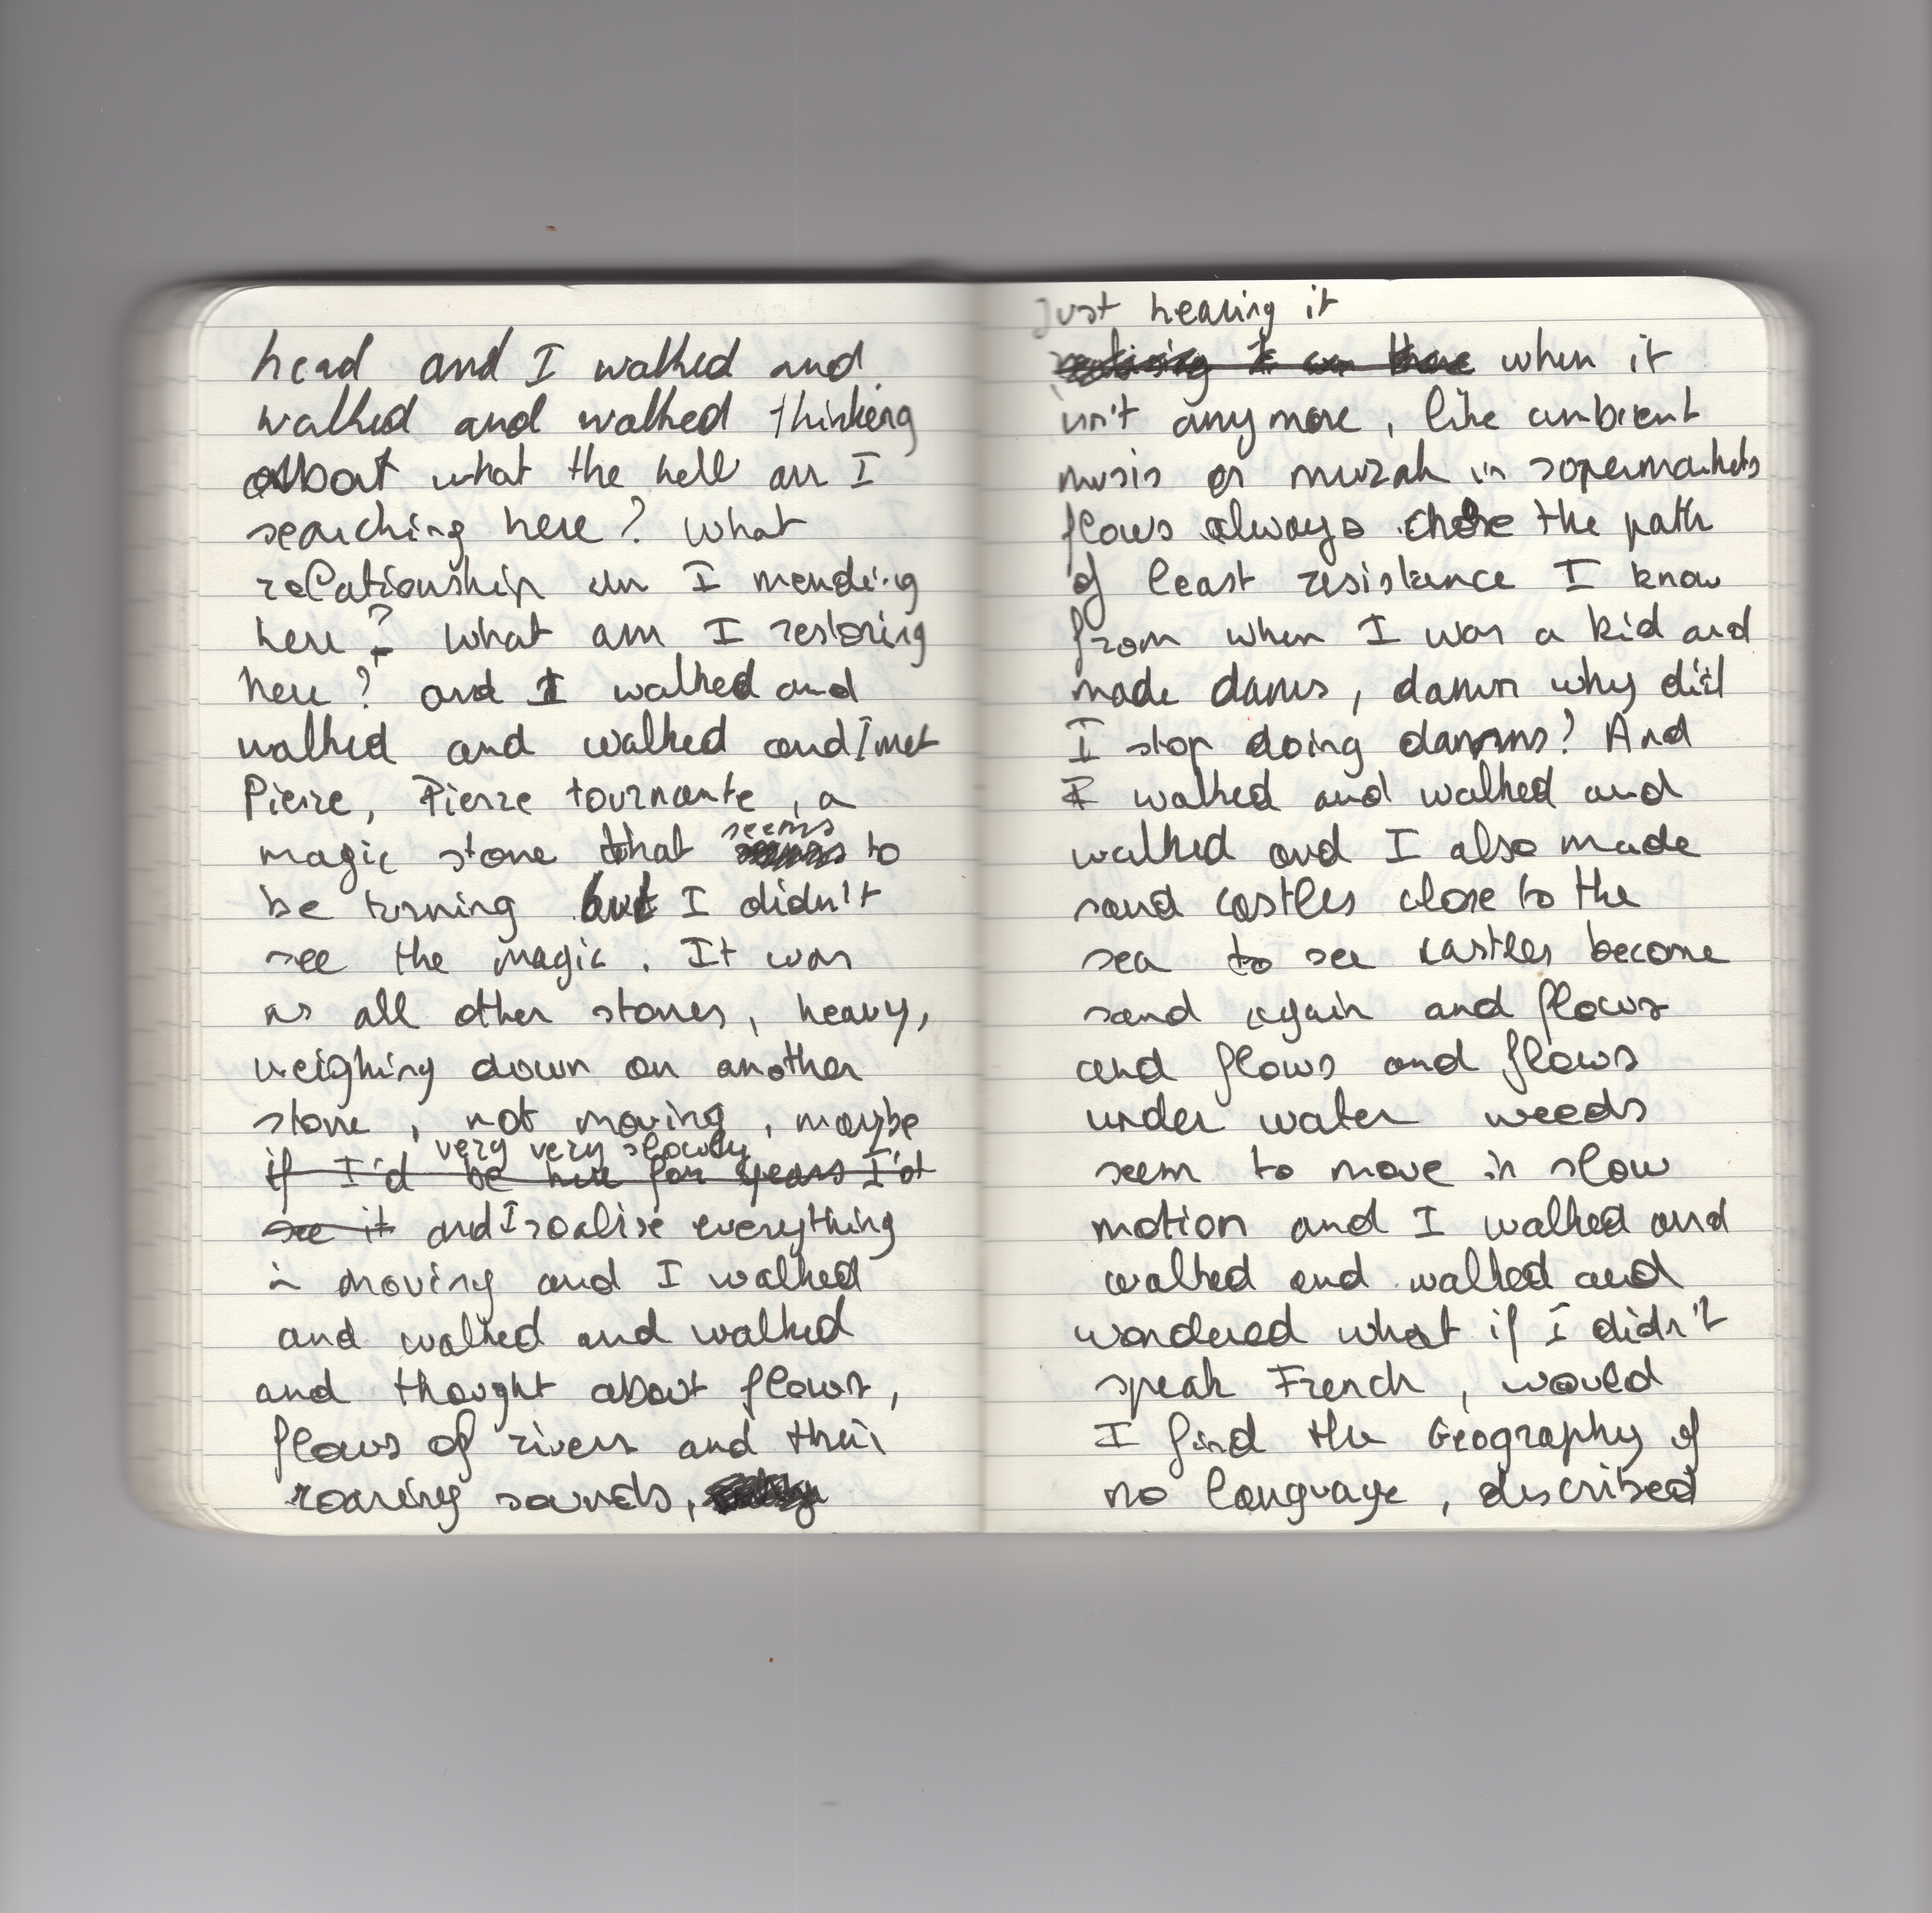 head and I walked and
walked and walked thinking
about what the hell am I
searching here? What
relationship am I mending
here? What am I restoring
here? and I walked and
walked and walked and I met
Pierre, Pierre tournante, a
magic stone that seems to
be turning but I didn't
see the magic. It was
as all other stones, heavy,
weighing down on another
stone, not moving, maybe
very very slowly
if I'd be here for years I'd
see it and I realise everything
is moving and I walked
and walked and walked
and thought about flows,
flows of rivers and their
roaring sounds,
Just hearing it
when it
isn't anymore, like ambient
musis or muzak in sopermarkets
flows always chose the path
of least resistance I know
from when I was a kid and
made dams, damn why did
I stop doing damms? And
I walked and walked and
walked and I also made
sand castles close to the
sea to see castles become
sand again and flows
and flows and flows
under water weeds
seem to move in slow
motion and I walked and
walked and walked and
wondered what if I didn't
speak French, would
I find the Geography of
no language, described